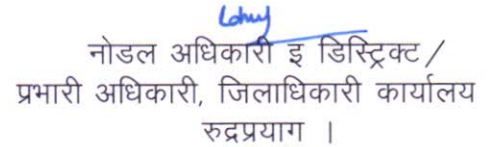 नोडल अधिकारी इ डिस्ट्रिक्ट /
प्रभारी अधिकारी, जिलाधिकारी कार्यालय
रुद्रप्रयाग ।